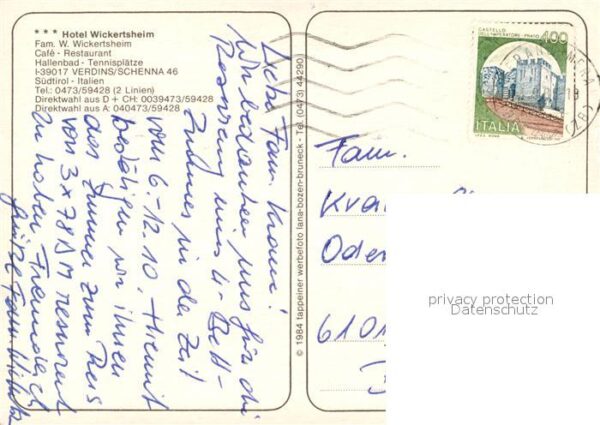 *** Hotel Wickertsheim
Fam. W. Wickertsheim
Café - Restaurant
Hallenbad - Tennisplätze
I-39017 VERDINS/SCHENNA 46
Südtirol - Italien
Tel.: 0473/59428 (2 Linien)
Direktwahl aus D + CH: 0039473/59428
Direktwahl aus A: 040473/59428
Liebe Fam.
Wir bedanken uns für die
Reservierung eines 4-Bett-
Zimmers in der Zeit
vom 6.-12.10. Hiermit
bestätigen wir Ihnen
das Zimmer zum Preis
von 3x78 DM reserviert
zu haben. Freundlich
Grüße Fam.
© 1984 tappeiner werbefoto lana-bozen-bruneck - Tel. (0473) 44290
CASTELLO
DELL'IMPERATORE - PRATO
400
ITALIA
Fam.
Oden
610
privacy protection
Datenschutz